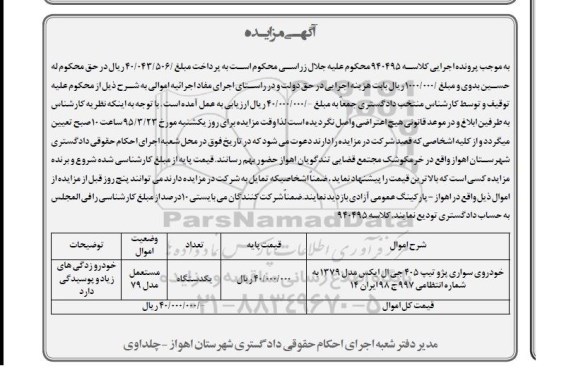 آگهی مزایده
به موجب پرونده اجرایی کلاسه ۹۴۰۴۹۵ محکوم علیه جلال زراسی محکوم است به پرداخت مبلغ ۴۰/۰۴۳/۵۰۶/ ریال در حق محکوم له
حسین بدوی و مبلغ ۱/۰۰۰/۰۰۰ ریال بابت هزینه اجرایی در حق دولت و در راستای اجرای مفاد اجرائیه اموالی به شرح ذیل از محکوم علیه
توقیف و توسط کارشناس منتخب دادگستری جمعا به مبلغ ۴۰/۰۰۰/۰۰۰/- ریال ارزیابی به عمل آمده است. با توجه به اینکه نظریه کارشناس
به طرفین ابلاغ و در موعد قانونی هیچ اعتراضی واصل نگردیده است لذا وقت مزایده برای روز یکشنبه مورخ ۹۵/۳/۲۳ ساعت ۱۰ صبح تعیین
میگردد و از کلیه اشخاصی که قصد شرکت در مزایده را دارند دعوت می شود که در تاریخ فوق در محل شعبه اجرای احکام حقوقی دادگستری
شهرستان اهواز واقع در خرمکوشک مجتمع قضایی تندگویان اهواز حضور بهم رسانند. قیمت پایه از مبلغ کارشناسی شده شروع و برنده
مزایده کسی است که بالاترین قیمت را پیشنهاد نماید، ضمنا اشخاصیکه تمایل به شرکت در مزایده دارند می توانند پنج روز قبل از مزایده از
اموال ذیل واقع در اهواز - پارکینگ عمومی آزادی بازدید نمایند. ضمنا شرکت کنندگان می بایستی ۱۰ درصد از مبلغ کارشناسی را فی المجلس
به حساب دادگستری تودیع نمایند. کلاسه ۹۴۰۴۹۵
شرح اموال قیمت پایه تعداد وضعیت اموال توضیحات
خودروی سواری پژو تیپ ۴۰۵ جی ال ایکس مدل ۱۳۷۹ به شماره انتظامی ۹۹۷ ج ۹۸ ایران ۱۴ ۴۰/۰۰۰/۰۰۰ ریال یکدستگاه مستعمل مدل ۷۹ خودرو زدگی های زیاد و پوسیدگی دارد
قیمت کل اموال ۴۰/۰۰۰/۰۰۰/- ریال
مدیر دفتر شعبه اجرای احکام حقوقی دادگستری شهرستان اهواز - چلداوی
ParsNamadData
۰۲۱-۸۸۳۴۹۶۷۰-۵